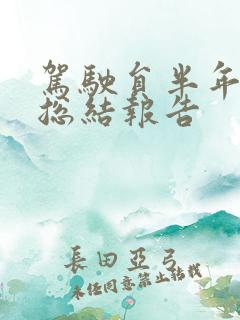 駕駛自半年
總結報告
長田亞弓
未經同意禁止轉載